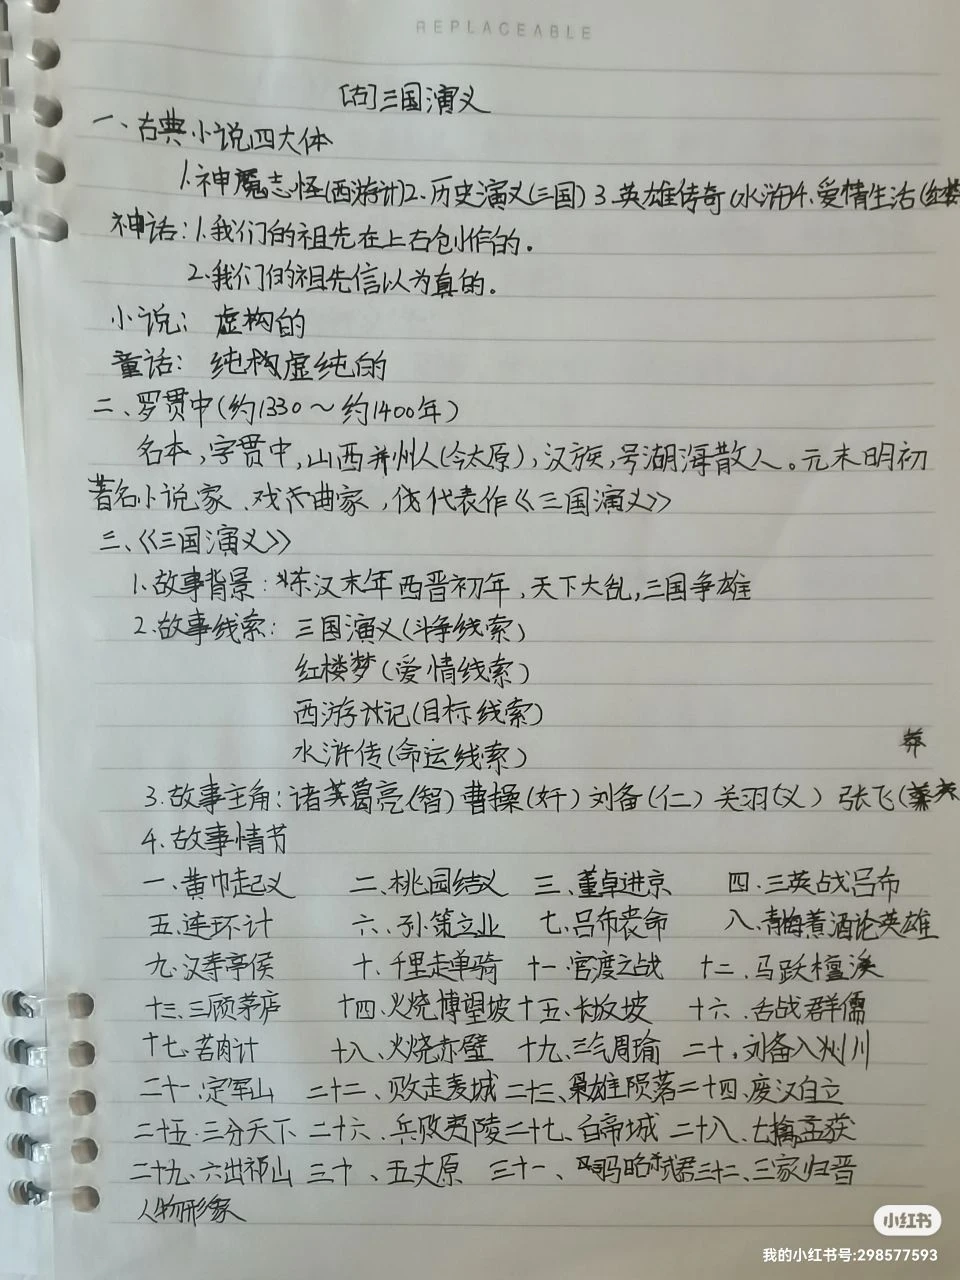 REPLACEABLE
[古]三国演义
一、古典小说四大体
1.神魔志怪(西游计)2.历史演义(三国) 3.英雄传奇(水浒)4.爱情生活(红楼
神话:1.我们的祖先在上右创作的.
2.我们的祖先信以为真的.
小说: 虚构的
童话: 纯构虚纯的
二、罗贯中(约1330～约1400年)
名本,字贯中,山西并州人(今太原),汉族,号湖海散人。元末明初
著名小说家、戏曲家,代表作《三国演义》
三、《三国演义》
1.故事背景:东汉末年西晋初年,天下大乱,三国争雄
2.故事线索: 三国演义(斗争线索)
红楼梦(爱情线索)
西游记(目标线索)
水浒传(命运线索)
莽
3.故事主角:诸葛亮(智) 曹操(奸) 刘备(仁) 关羽(义) 张飞(
4.故事情节
一、黄巾起义 二、桃园结义 三、董卓进京 四、三英战吕布
五、连环计 六、孙策立业 七、吕布丧命 八、青梅煮酒论英雄
九、汉寿亭侯 十、千里走单骑 十一、官渡之战 十二、马跃檀溪
十三、三顾茅庐 十四、火烧博望坡 十五、长坂坡 十六、舌战群儒
十七、苦肉计 十八、火烧赤壁 十九、三气周瑜 二十、刘备入州川
二十一、定军山 二十二、败走麦城 二十三、枭雄陨落 二十四、废汉自立
二十五、三分天下 二十六、兵败夷陵 二十七、白帝城 二十八、七擒孟获
二十九、六出祁山 三十、五丈原 三十一、司马昭弑君 三十二、三家归晋
人物形象
小红书
我的小红书号:298577593